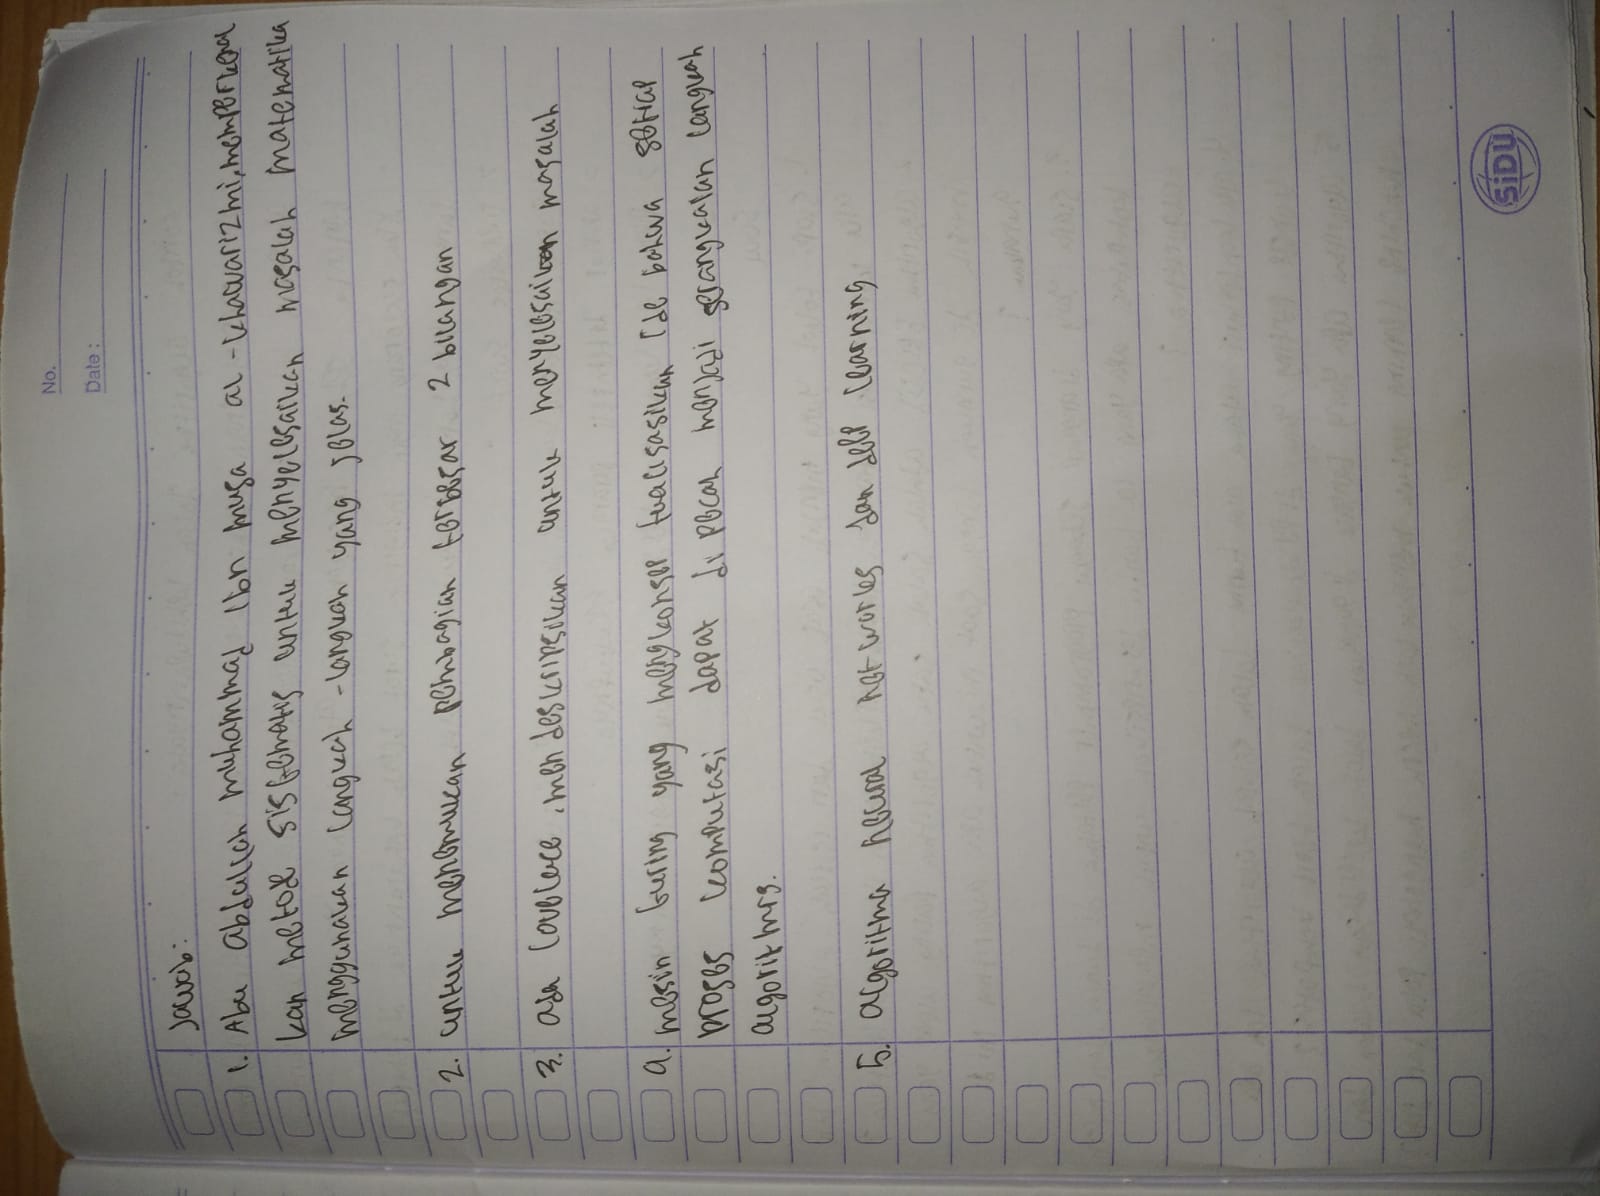 No.
Date :
Jawab:
1. Abu abdullah muhammad ibn musa al-khawarizmi, memperkenal
kan metode sistematis untuk menyelesaikan masalah matematika
menggunakan langkah-langkah yang jelas.
2. untuk menemukan pembagian terbesar 2 bilangan
3. ada lovelace, men deskripsikan untuk menyelesaikan masalah
4. mesin turing yang mengkonsep tualisasikan ide bahwa setiap
proses komputasi dapat di pecah menjadi serangkaian langkah
algoritmis.
5. algoritma neural networks dan deep learning
SiDU